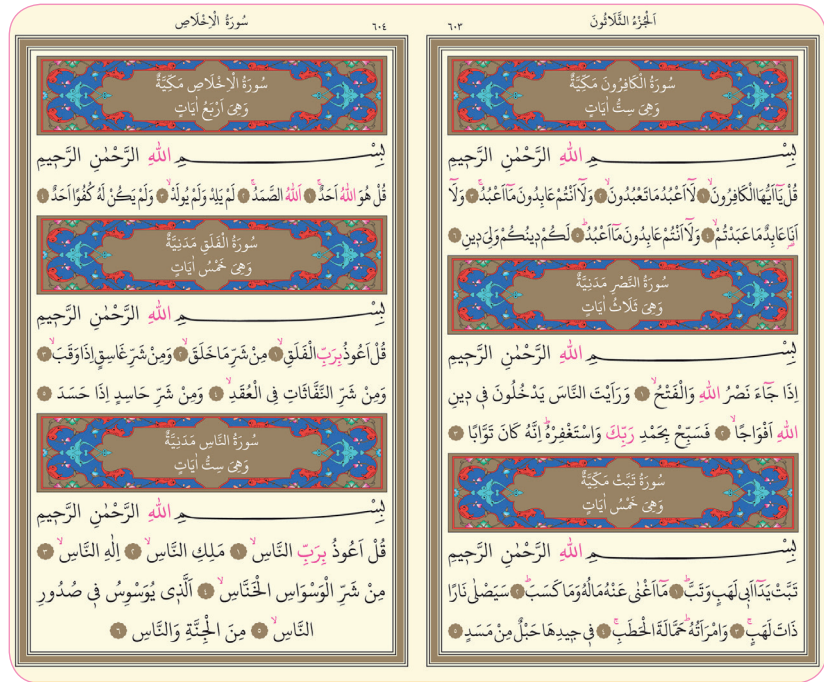 اَلْجُزْءُ الثَّلَاثُونَ
٦٠٣
سُورَةُ الْكَافِرُونَ مَكِّيَّةٌ
وَهِيَ سِتُّ اٰيَاتٍ
بِسْمِ اللّٰهِ الرَّحْمٰنِ الرَّحِيمِ
قُلْ يَٓا اَيُّهَا الْكَافِرُونَۙ ﴿١﴾ لَٓا اَعْبُدُ مَا تَعْبُدُونَۙ ﴿٢﴾ وَلَٓا اَنْتُمْ عَابِدُونَ مَٓا اَعْبُدُۚ ﴿٣﴾ وَلَٓا
اَنَا۬ عَابِدٌ مَا عَبَدْتُمْۙ ﴿٤﴾ وَلَٓا اَنْتُمْ عَابِدُونَ مَٓا اَعْبُدُۜ ﴿٥﴾ لَكُمْ دِينُكُمْ وَلِيَ دِينِ ﴿٦﴾
سُورَةُ النَّصْرِ مَدَنِيَّةٌ
وَهِيَ ثَلَاثُ اٰيَاتٍ
بِسْمِ اللّٰهِ الرَّحْمٰنِ الرَّحِيمِ
اِذَا جَٓاءَ نَصْرُ اللّٰهِ وَالْفَتْحُۙ ﴿١﴾ وَرَاَيْتَ النَّاسَ يَدْخُلُونَ فِي دِينِ
اللّٰهِ اَفْوَاجًاۙ ﴿٢﴾ فَسَبِّحْ بِحَمْدِ رَبِّكَ وَاسْتَغْفِرْهُۜ اِنَّهُ كَانَ تَوَّابًا ﴿٣﴾
سُورَةُ تَبَّتْ مَكِّيَّةٌ
وَهِيَ خَمْسُ اٰيَاتٍ
بِسْمِ اللّٰهِ الرَّحْمٰنِ الرَّحِيمِ
تَبَّتْ يَدَٓا اَبِي لَهَبٍ وَتَبَّۜ ﴿١﴾ مَٓا اَغْنٰى عَنْهُ مَالُهُ وَمَا كَسَبَۜ ﴿٢﴾ سَيَصْلٰى نَارًا
ذَاتَ لَهَبٍۚ ﴿٣﴾ وَامْرَاَتُهُۜ حَمَّالَةَ الْحَطَبِۚ ﴿٤﴾ فِي جِيدِهَا حَبْلٌ مِنْ مَسَدٍ ﴿٥﴾
سُورَةُ الْاِخْلَاصِ
٦٠٤
سُورَةُ الْاِخْلَاصِ مَكِّيَّةٌ
وَهِيَ اَرْبَعُ اٰيَاتٍ
بِسْمِ اللّٰهِ الرَّحْمٰنِ الرَّحِيمِ
قُلْ هُوَ اللّٰهُ اَحَدٌۚ ﴿١﴾ اَللّٰهُ الصَّمَدُۚ ﴿٢﴾ لَمْ يَلِدْ وَلَمْ يُولَدْۙ ﴿٣﴾ وَلَمْ يَكُنْ لَهُ كُفُوًا اَحَدٌ ﴿٤﴾
سُورَةُ الْفَلَقِ مَدَنِيَّةٌ
وَهِيَ خَمْسُ اٰيَاتٍ
بِسْمِ اللّٰهِ الرَّحْمٰنِ الرَّحِيمِ
قُلْ اَعُوذُ بِرَبِّ الْفَلَقِۙ ﴿١﴾ مِنْ شَرِّ مَا خَلَقَۙ ﴿٢﴾ وَمِنْ شَرِّ غَاسِقٍ اِذَا وَقَبَۙ ﴿٣﴾
وَمِنْ شَرِّ النَّفَّاثَاتِ فِي الْعُقَدِۙ ﴿٤﴾ وَمِنْ شَرِّ حَاسِدٍ اِذَا حَسَدَ ﴿٥﴾
سُورَةُ النَّاسِ مَدَنِيَّةٌ
وَهِيَ سِتُّ اٰيَاتٍ
بِسْمِ اللّٰهِ الرَّحْمٰنِ الرَّحِيمِ
قُلْ اَعُوذُ بِرَبِّ النَّاسِۙ ﴿١﴾ مَلِكِ النَّاسِۙ ﴿٢﴾ اِلٰهِ النَّاسِۙ ﴿٣﴾
مِنْ شَرِّ الْوَسْوَاسِ الْخَنَّاسِۙ ﴿٤﴾ اَلَّذِي يُوَسْوِسُ فِي صُدُورِ
النَّاسِۙ ﴿٥﴾ مِنَ الْجِنَّةِ وَالنَّاسِ ﴿٦﴾